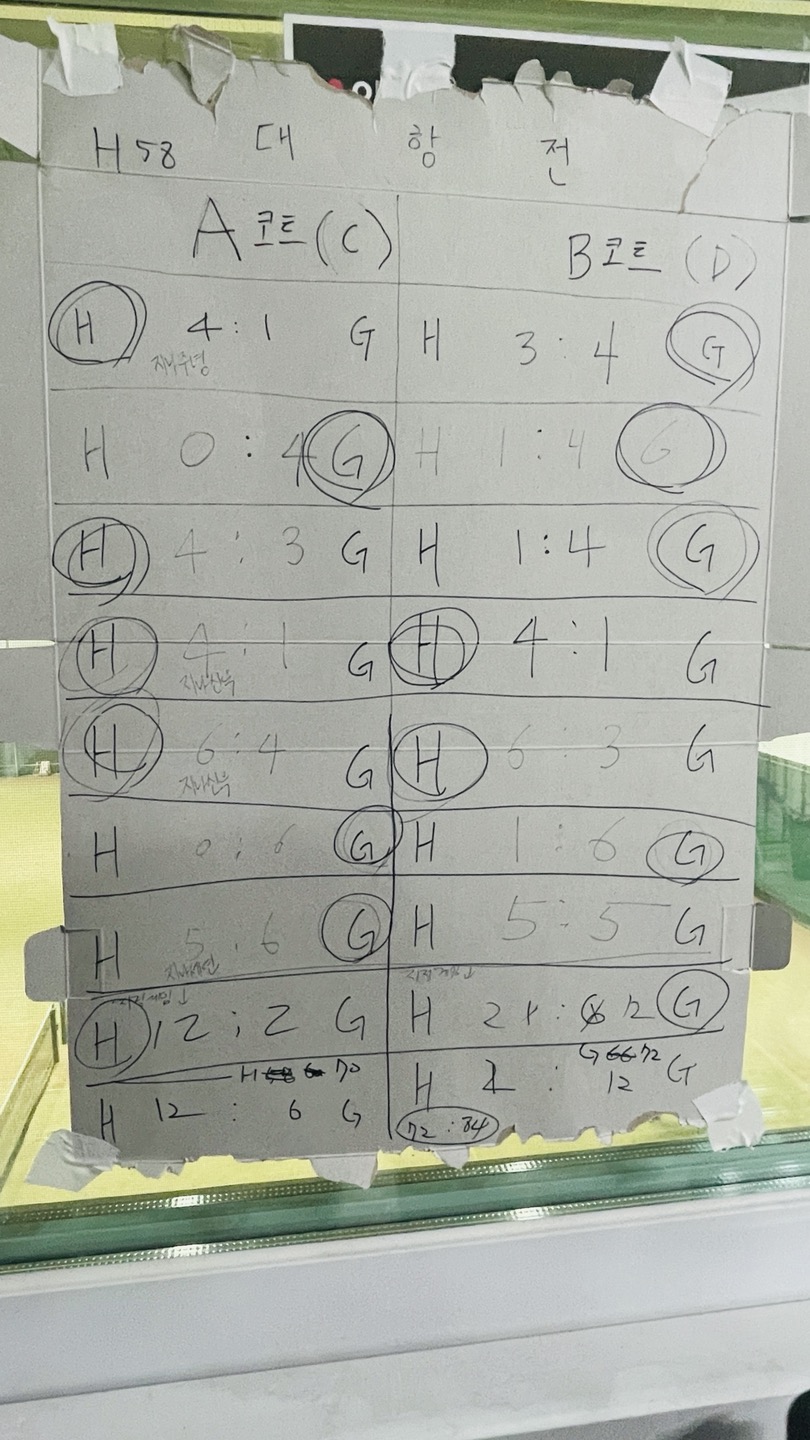 H 58 대 항 전
A 코트 (C)
B 코트 (D)
H 4 : 1 G
H 3 : 4 G
H 0 : 4 G
H 1 : 4 G
H 4 : 3 G
H 1 : 4 G
H 4 : 1 G
H 4 : 1 G
H 6 : 4 G
H 6 : 3 G
H 0 : 6 G
H 1 : 6 G
H 5 : 6 G
H 5 : 5 G
H 12 : 2 G
H 2 : 12 G
H 70
G 66 72
H 2 : 12 G
H 12 : 6 G
72 : 84